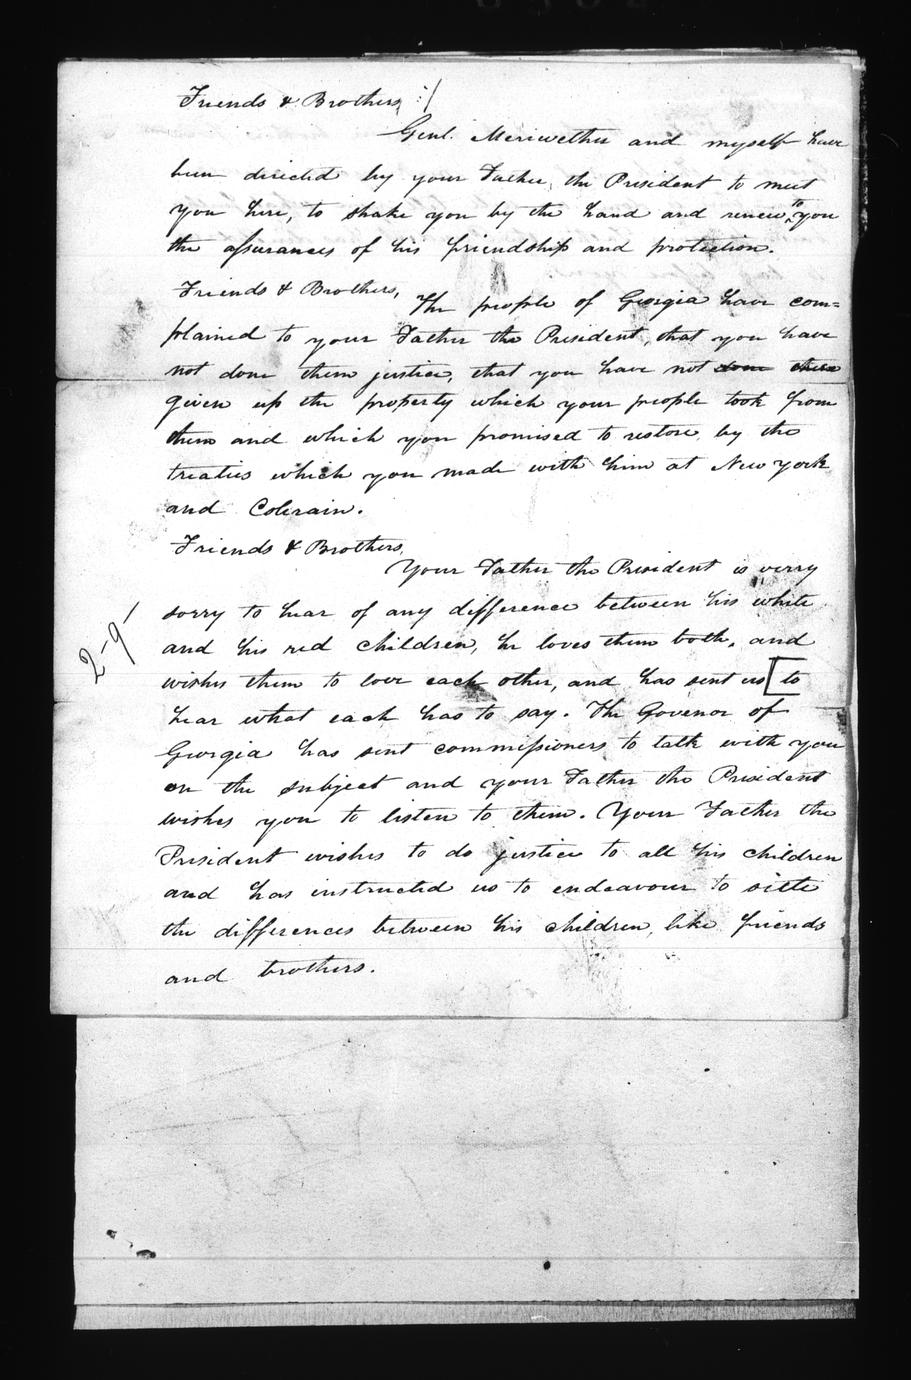 Friends & Brothers,
Genl. Meriwether and myself have
been directed by your Father, the President to meet
you here, to shake you by the hand and renew to you
the assurances of his friendship and protection.
Friends & Brothers,
The people of Georgia have com=
plained to your Father the President, that you have
not done them justice, that you have not done them
given up the property which your people took from
them and which you promised to restore by the
treaties which you made with him at New york
and Colerain.
Friends & Brothers,
Your Father the President is verry
sorry to hear of any difference between his white
and his red children, he loves them both, and
wishes them to love each other, and has sent us [to
hear what each has to say. The Govenor of
Georgia has sent commissioners to talk with you
on the subject and your Father the President
wishes you to listen to them. Your Father the
President wishes to do justice to all his children
and has instructed us to endeavour to settle
the differences between his children, like friends
and brothers.
2-9-